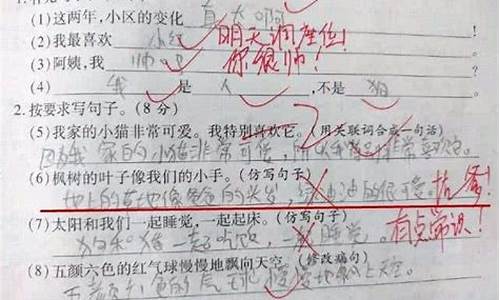 (1)这两年,小区的变化 真大啊
(2)我最喜欢 小红 明天调座位!
(3)阿姨,我 帅吗 你很帅!
(4) 我 是 人 ,不是 狗
2.按要求写句子。(8分)
(5)我家的小猫非常可爱。我特别喜欢它。(用关联词合成一句话)
因为我家的小猫非常可爱,所以我特别非常喜欢它。
(6)枫树的叶子像我们的小手。(仿写句子)
地上的草地像爸爸的头发,绿油油的很可爱。
(7)太阳和我们一起睡觉,一起起床。(仿写句子)
狗和猪一起吃饭,一起睡觉。有点常识!
(8)五颜六色的红气球慢慢地飘向天空。(修改病句)
五颜六色的气球慢慢地飘上天空。